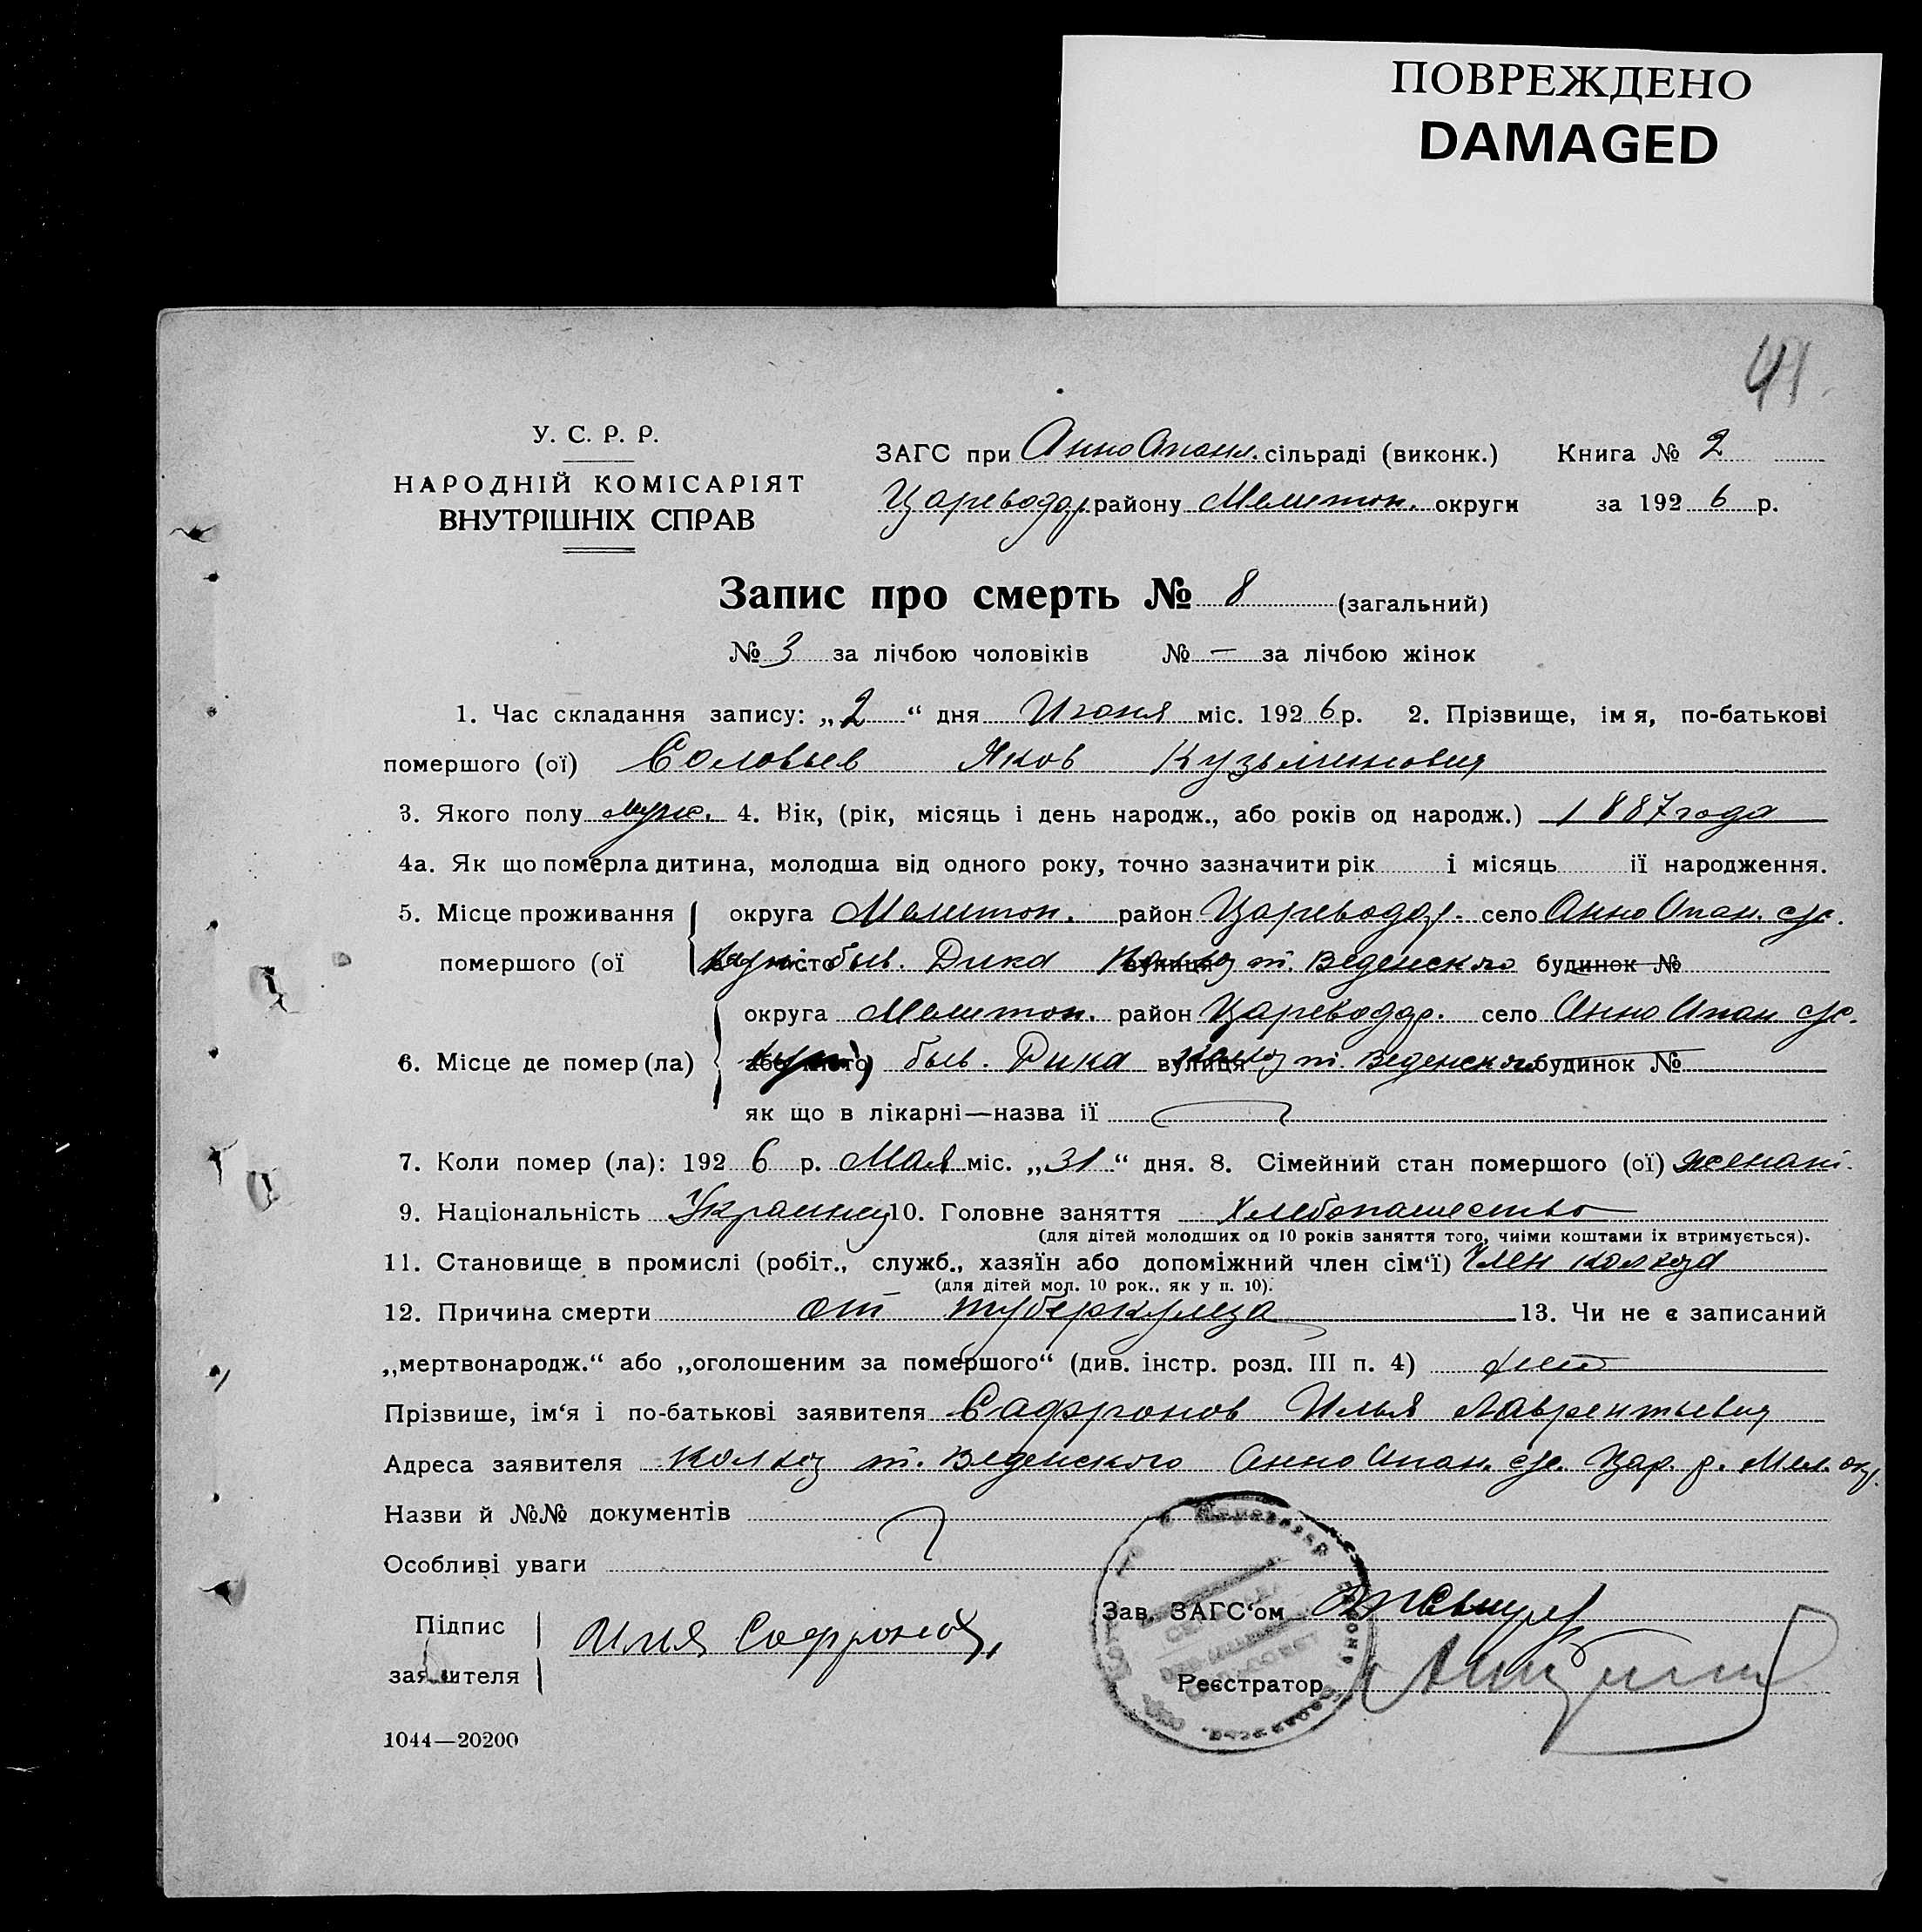 ПОВРЕЖДЕНО
DAMAGED
41
У. С. Р. Р.
НАРОДНІЙ КОМІСАРІЯТ
ВНУТРІШНІХ СПРАВ
ЗАГС при Анно Опанл. сільраді (виконк.) Книга № 2
Цареводар. району Мелитоп. округи за 1926 р.
Запис про смерть № 8 (загальний)
№ 3 за лічбою чоловіків № — за лічбою жінок
1. Час складання запису: „2“ дня Июня міс. 1926 р. 2. Прізвище, імя, по-батькові
помершого (ої) Соловьев Яков Кузьминович
3. Якого полу муж. 4. Вік, (рік, місяць і день народж., або років од народж.) 1887 года
4а. Як що померла дитина, молодша від одного року, точно зазначити рік і місяць її народження.
5. Місце проживання округа Мелитоп. район Цареводар. село Анно Опан. с/с.
помершого (ої быв. Дика т. Веденского будинок №
округа Мелитоп. район Цареводар. село Анно Опан с/с.
6. Місце де помер (ла) быв. Дика вулиця т. Веденского будинок №
як що в лікарні—назва її
7. Коли помер (ла): 1926 р. Мая міс. „31“ дня. 8. Сімейний стан помершого (ої) женат.
9. Національність Украинец 10. Головне заняття Хлебопашество
(для дітей молодших од 10 років заняття того, чиїми коштами їх втримується).
11. Становище в промислі (робіт., служб., хазяїн або допоміжний член сім‘ї) Член колхоза
(для дітей мол. 10 рок., як у п. 10).
12. Причина смерти от туберкулеза 13. Чи не є записаний
„мертвонародж.“ або „оголошеним за помершого“ (див. інстр. розд. III п. 4) нет
Прізвише, ім‘я і по-батькові заявителя Сафронов Илья Лаврентьевич
Адреса заявителя Колхоз т. Веденского Анно Опан. с/с. Цар. р. Мел. окр.
Назви й №№ документів
Особливі уваги
Підпис
заявителя
Илия Сафронов,
Зав. ЗАГС‘ом
Реєстратор
1044—20200